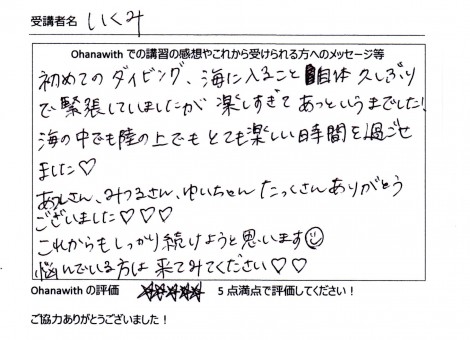 受講者名 いくみ
Ohanawith での講習の感想やこれから受けられる方へのメッセージ等
初めての ダイビング、海に入ること自体 久しぶり
で緊張していましたが 楽しすぎて あっというまでした!
海の中でも陸の上でも とても楽しい時間を過ごせ
ました♡
あつしさん、みつるさん、ゆいちゃん たっくさん ありがとう
ございました♡♡♡
これからも しっかり 続けようと思います☺
悩んでいる方は 来てみてください♡♡
Ohanawith の評価 ★★★★★ 5 点満点で評価してください！
ご協力ありがとうございました！